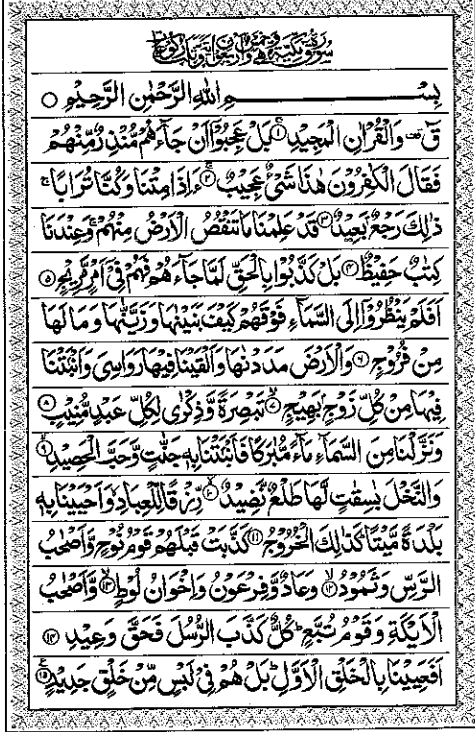 سُوْرَةُ قٓ مَكِّيَّةٌ وَّهِيَ خَمْسٌ وَّاَرْبَعُوْنَ اٰيَةً وَّثَلٰثُ رُكُوْعَاتٍ
بِسْــــــــــمِ اللهِ الرَّحْمٰنِ الرَّحِيْمِ ○
قٓ ۚ وَالْقُرْاٰنِ الْمَجِيْدِ ۝۱ بَلْ عَجِبُوْۤا اَنْ جَآءَهُمْ مُّنْذِرٌ مِّنْهُمْ
فَقَالَ الْكٰفِرُوْنَ هٰذَا شَيْءٌ عَجِيْبٌ ۝۲ ءَاِذَا مِتْنَا وَكُنَّا تُرَابًا ۚ
ذٰلِكَ رَجْعٌۢ بَعِيْدٌ ۝۳ قَدْ عَلِمْنَا مَا تَنْقُصُ الْاَرْضُ مِنْهُمْ ۚ وَعِنْدَنَا
كِتٰبٌ حَفِيْظٌ ۝۴ بَلْ كَذَّبُوْا بِالْحَقِّ لَمَّا جَآءَهُمْ فَهُمْ فِيْۤ اَمْرٍ مَّرِيْجٍ ۝۵
اَفَلَمْ يَنْظُرُوْۤا اِلَى السَّمَآءِ فَوْقَهُمْ كَيْفَ بَنَيْنٰهَا وَزَيَّنّٰهَا وَمَا لَهَا
مِنْ فُرُوْجٍ ۝۶ وَالْاَرْضَ مَدَدْنٰهَا وَاَلْقَيْنَا فِيْهَا رَوَاسِيَ وَاَنْۢبَتْنَا
فِيْهَا مِنْ كُلِّ زَوْجٍۭ بَهِيْجٍ ۝۷ تَبْصِرَةً وَّذِكْرٰى لِكُلِّ عَبْدٍ مُّنِيْبٍ ۝۸
وَنَزَّلْنَا مِنَ السَّمَآءِ مَآءً مُّبٰرَكًا فَاَنْۢبَتْنَا بِهٖ جَنّٰتٍ وَّحَبَّ الْحَصِيْدِ ۝۹
وَالنَّخْلَ بٰسِقٰتٍ لَّهَا طَلْعٌ نَّضِيْدٌ ۝۱۰ رِّزْقًا لِّلْعِبَادِ ۙ وَاَحْيَيْنَا بِهٖ
بَلْدَةً مَّيْتًا ؕ كَذٰلِكَ الْخُرُوْجُ ۝۱۱ كَذَّبَتْ قَبْلَهُمْ قَوْمُ نُوْحٍ وَّاَصْحٰبُ
الرَّسِّ وَثَمُوْدُ ۝۱۲ وَعَادٌ وَّفِرْعَوْنُ وَاِخْوَانُ لُوْطٍ ۝۱۳ وَّاَصْحٰبُ
الْاَيْكَةِ وَقَوْمُ تُبَّعٍ ؕ كُلٌّ كَذَّبَ الرُّسُلَ فَحَقَّ وَعِيْدِ ۝۱۴
اَفَعَيِيْنَا بِالْخَلْقِ الْاَوَّلِ ؕ بَلْ هُمْ فِيْ لَبْسٍ مِّنْ خَلْقٍ جَدِيْدٍ ۝۱۵